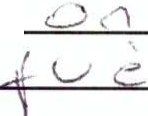 on
què